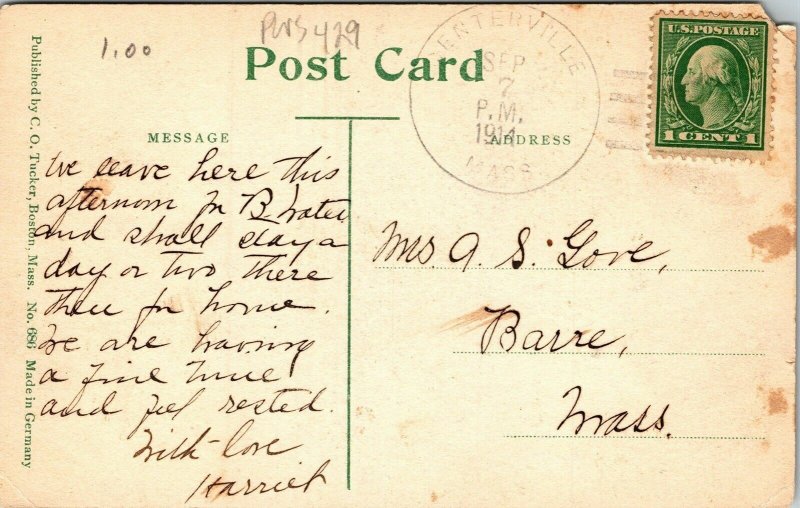 1.00
PWS 429
Post Card
CENTERVILLE
SEP
7
P.M.
1914
MASS.
U.S. POSTAGE
1 CENT 1
MESSAGE
ADDRESS
We leave here this
afternoon for B. Water
and shall stay a
day or two there
then for home.
We are having
a fine time
and feel rested.
With love
Harriet
Mrs. A. S. Gove,
Barre,
Mass.
Published by C. O. Tucker, Boston, Mass. No. 686 Made in Germany